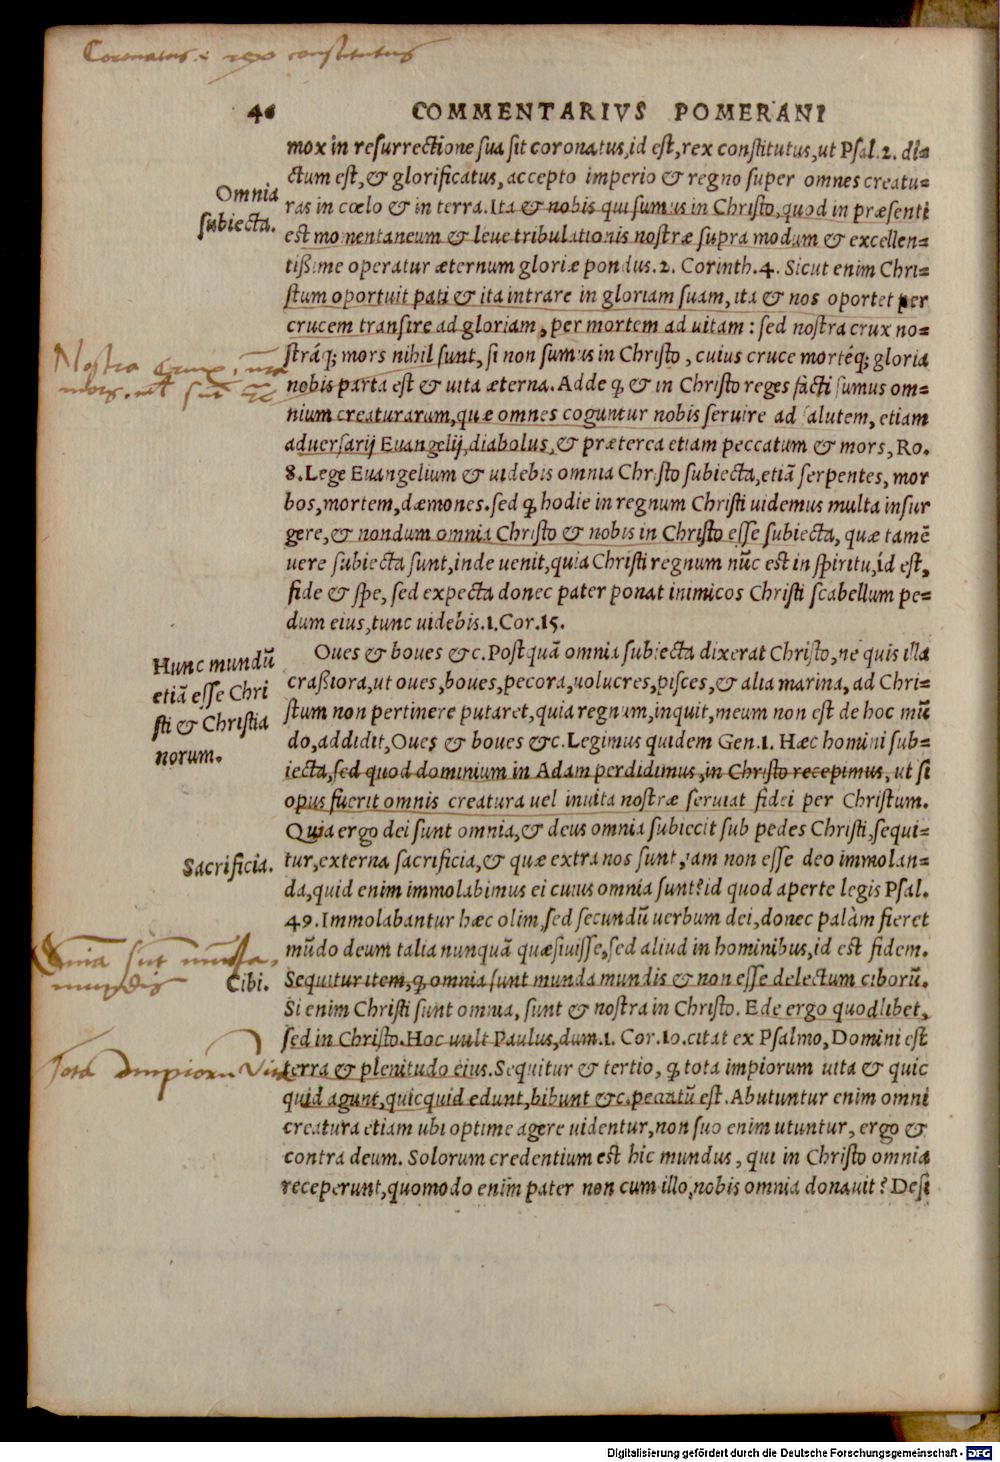 Coronatus .i. rex constitutus
46 COMMENTARIVS POMERANI
mox in resurrectione sua sit coronatus, id est, rex constitutus, ut Psal. 2. di=
ctum est, & glorificatus, accepto imperio & regno super omnes creatu=
Omnia
ras in cœlo & in terra. Ita & nobis qui sumus in Christo, quod in præsenti
subiecta.
est momentaneum & leue tribulationis nostræ supra modum & excellen=
tißime operatur æternum gloriæ pondus. 2. Corinth. 4. Sicut enim Chri=
stum oportuit pati & ita intrare in gloriam suam, ita & nos oportet per
crucem transire ad gloriam, per mortem ad uitam: sed nostra crux no=
Nostra crux, 
stráq; mors nihil sunt, si non sumus in Christo, cuius cruce mortéq; gloria
mors, nihil sunt &c
nobis parta est & uita æterna. Adde ꝙ & in Christo reges facti sumus om=
nium creaturarum, quæ omnes coguntur nobis seruire ad salutem, etiam
aduersarij Euangelij, diabolus, & præterea etiam peccatum & mors, Ro.
8. Lege Euangelium & uidebis omnia Christo subiecta, etiã serpentes, mor
bos, mortem, dæmones. sed ꝙ hodie in regnum Christi uidemus multa insur
gere, & nondum omnia Christo & nobis in Christo esse subiecta, quæ tamẽ
uere subiecta sunt, inde uenit, quia Christi regnum nũc est in spiritu, id est,
fide & spe, sed expecta donec pater ponat inimicos Christi scabellum pe=
dum eius, tunc uidebis. 1. Cor. 15.
Oues & boues &c. Postquã omnia subiecta dixerat Christo, ne quis illa
Hunc mundũ
etiã esse Chri
sti & Christia
norum.
craßiora, ut oues, boues, pecora, uolucres, pisces, & alia marina, ad Chri=
stum non pertinere putaret, quia regnum, inquit, meum non est de hoc mũ
do, addidit, Oues & boues &c. Legimus quidem Gen. 1. Hæc homini sub=
iecta, sed quod dominium in Adam perdidimus, in Christo recepimus, ut si
opus fuerit omnis creatura uel inuita nostræ seruiat fidei per Christum.
Quia ergo dei sunt omnia, & deus omnia subiecit sub pedes Christi, sequi=
Sacrificia.
tur, externa sacrificia, & quæ extra nos sunt, iam non esse deo immolan=
da, quid enim immolabimus ei cuius omnia sunt? id quod aperte legis Psal.
49. Immolabantur hæc olim, sed secundũ uerbum dei, donec palàm fieret
mũdo deum talia nunquã quæsiuisse, sed aliud in hominibus, id est fidem.
Omnia sunt munda
mundis
Cibi.
Sequitur item, ꝙ omnia sunt munda mundis & non esse delectum ciborũ.
Si enim Christi sunt omnia, sunt & nostra in Christo. Ede ergo quodlibet,
sed in Christo. Hoc uult Paulus, dum. 1. Cor. 10. citat ex Psalmo, Domini est
Tota Impiorum Vita
terra & plenitudo eius. Sequitur & tertio, ꝙ tota impiorum uita & quic
quid agunt, quicquid edunt, bibunt &c. peccatũ est. Abutuntur enim omni
creatura etiam ubi optime agere uidentur, non suo enim utuntur, ergo &
contra deum. Solorum credentium est hic mundus, qui in Christo omnia
receperunt, quomodo enim pater non cum illo, nobis omnia donauit? Desi
Digitalisierung gefördert durch die Deutsche Forschungsgemeinschaft - DFG